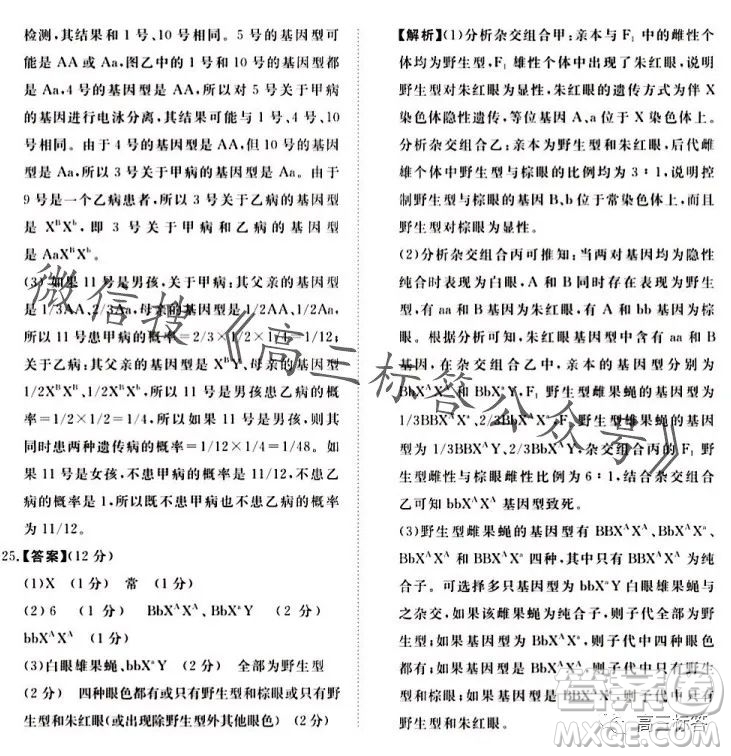 检测,其结果和1号、10号相同。5号的基因型可
能是AA或Aa,图乙中的1号和10号的基因型
都是Aa,4号的基因型是AA,所以对5号的甲病
的基因进行电泳分离,其结果可能与1号、4号、10
号相同。由于4号的基因型是AA,但10号的基因
型是Aa,所以3号关于甲病的基因型是Aa。由于
9号是一个乙病患者,所以3号关于乙病的基因型
是XᴮXᵇ,即3号关于甲病和乙病的基因型
是AaXᴮXᵇ。
(3)如果11号是男孩,关于甲病:其父亲的基因型
是1/3AA、2/3Aa,母亲的基因型是1/2AA、1/2Aa,
所以11号患甲病的概率=2/3×1/2×1/4=1/12;
关于乙病:其父亲的基因型是XᴮY、母亲的基因型
1/2XᴮXᴮ、1/2XᴮXᵇ,所以11号是男孩患乙病的概率
=1/2×1/2=1/4。所以如果11号是男孩,则其
同时患两种遗传病的概率=1/12×1/4=1/48。如
果11号是女孩,不患甲病的概率是11/12,不患乙
病的概率是1,所以既不患甲病也不患乙病的概率
为11/12。
25.【答案】(12分)
(1)X (1分) 常 (1分)
(2)6 (1分) BbXᴬXᴬ、BbXᵃY (2分)
bbXᴬXᴬ (1分)
(3)白眼雄果蝇、bbXᵃY (2分) 全部为野生型
(2分) 四种眼色都有或只有野生型和棕眼或只有
野生型和朱红眼(或出现除野生型外其他眼色) (2分)
【解析】(1)分析杂交组合甲:亲本与F₁中的雌性个
体均为野生型,F₁雄性个体中出现了朱红眼,说明
野生型对朱红眼为显性,朱红眼的遗传方式为伴X
染色体隐性遗传,等位基因A、a位于X染色体上。
分析杂交组合乙:亲本为野生型和棕眼,后代雌
雄个体中野生型与棕眼的比例均为3∶1,说明控
制野生型与棕眼的基因B、b位于常染色体上,而且
野生型对棕眼为显性。
(2)分析杂交组合丙可推知:当两对基因均为隐性
纯合时表现为白眼,A和B同时存在表现为野生
型,有aa和B基因为朱红眼,有bb和A基因为棕
眼。根据分析可知,朱红眼基因型中含有aa和B
基因,在杂交组合乙中,亲本的基因型分别为
BbXᴬXᵃ和BbXᴬY,F₁野生型雌果蝇的基因型为
1/3BBXᴬXᵃ、2/3BbXᴬXᵃ,F₁野生型雄果蝇的基因
型为1/3BBXᴬY、2/3BbXᴬY,杂交组合丙中的F₁
野生型雌性与棕眼雌性比例为6∶1,结合杂交组合
乙可知bbXᴬXᴬ基因型致死。
(3)野生型雌果蝇的基因型有BBXᴬXᴬ、BBXᴬXᵃ、
BbXᴬXᴬ和BbXᴬXᵃ四种,其中只有BBXᴬXᴬ为纯
合子。可选择基因型为bbXᵃY白眼雄果蝇与
之杂交,如果该雌果蝇为纯合子,则子代全部为野
生型;如果基因型为BbXᴬXᵃ,则子代中四种眼色都
有;如果基因型为BbXᴬXᴬ,则子代中只有野生
型和棕眼;如果基因型为BBXᴬXᵃ,则子代中只有野
生型和朱红眼。
微信搜《高三标答公众号》
高三标答
答案圈
MXQE.COM